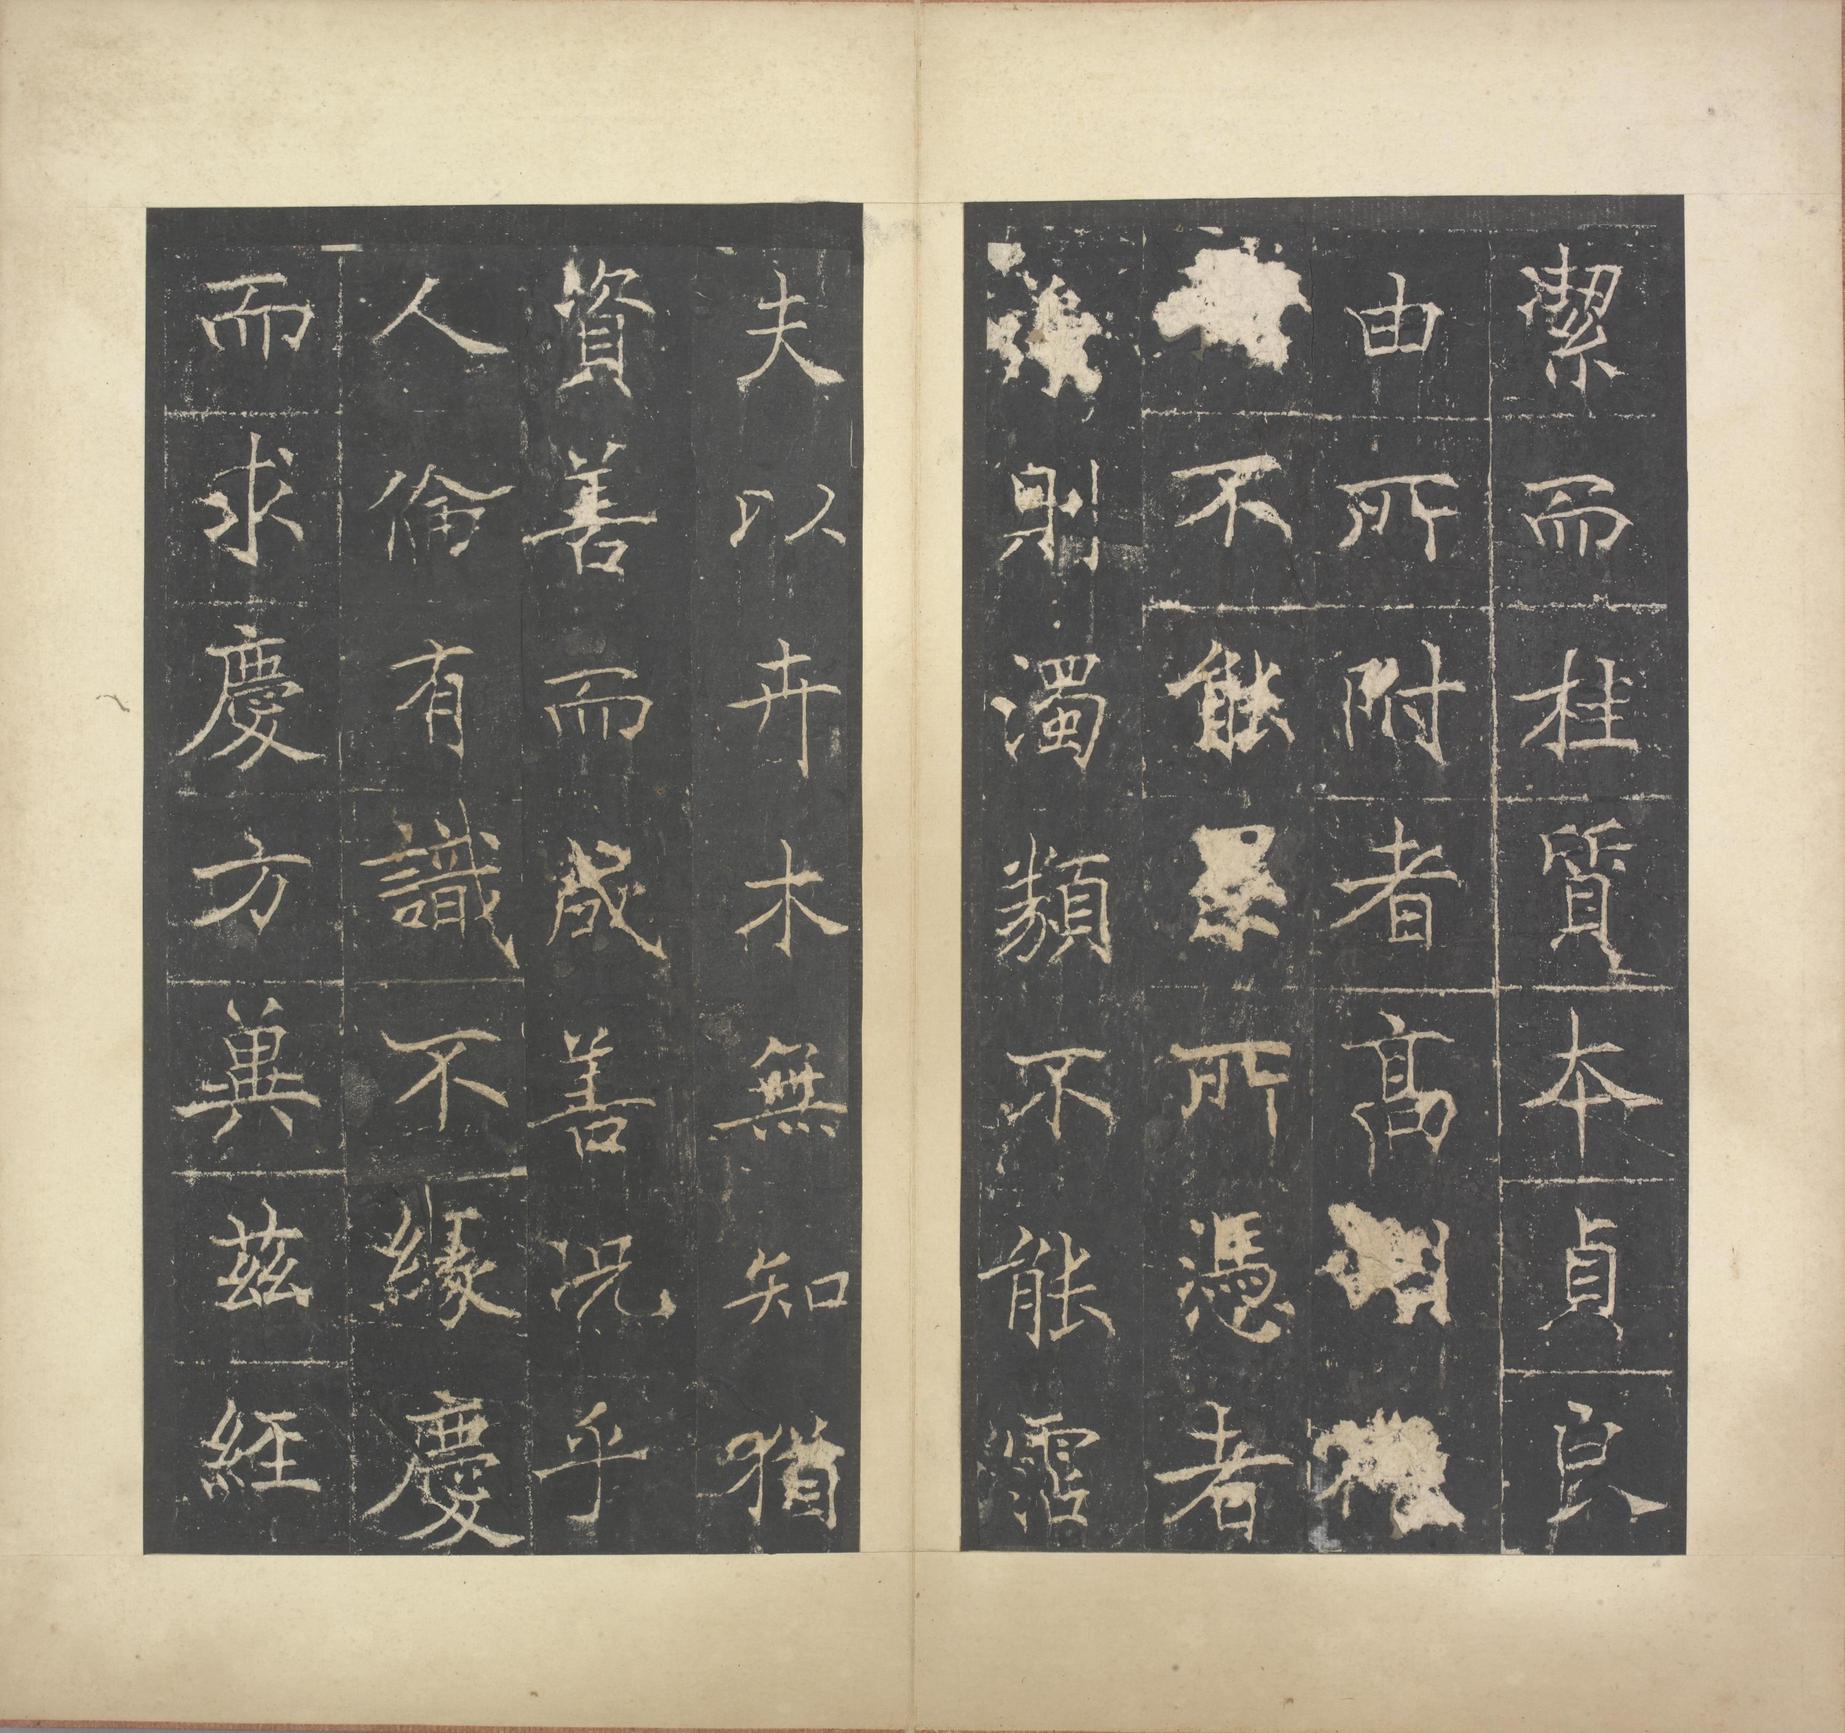 潔而桂質本貞良
由所附者高
不能累所憑者
則濁類不能霑
夫以卉木無知猶
資善而成善况乎
人倫有識不緣慶
而求慶方冀茲經